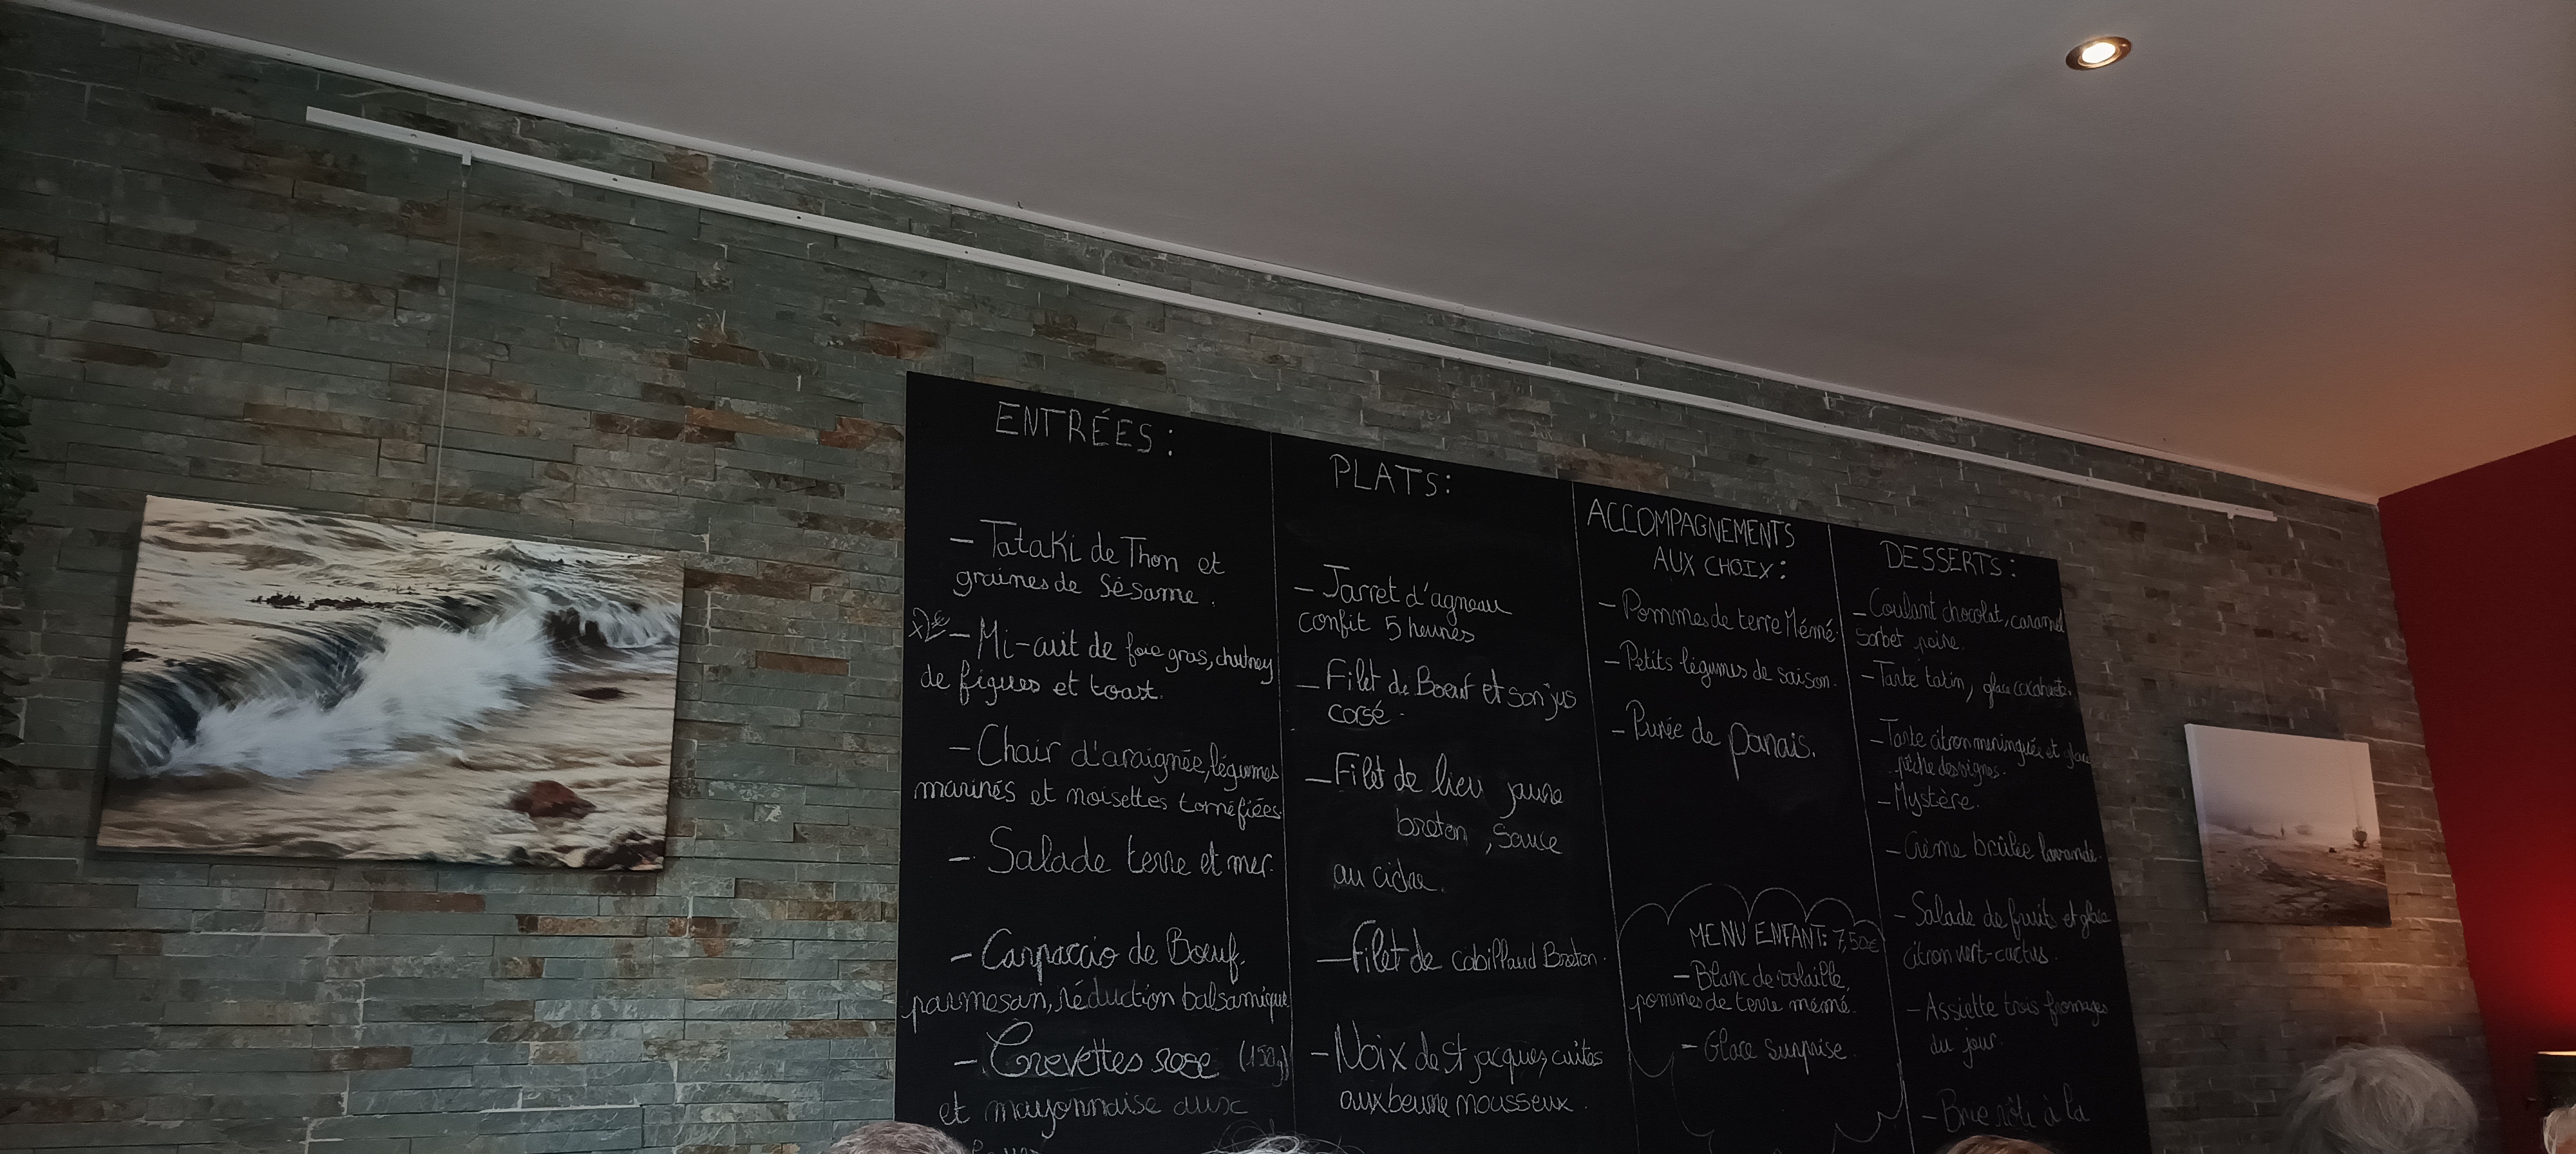 ENTRÉES :
– Tataki de Thon et
graines de Sésame.
– Mi-cuit de foie gras, chutney
de figues et toast.
– Chair d'araignée, légumes
marinés et noisettes torréfiées
– Salade terre et mer.
– Carpaccio de Bœuf,
parmesan, réduction balsamique
– Crevettes rose (150g)
et mayonnaise aux
PLATS :
– Jarret d'agneau
confit 5 heures
– Filet de Bœuf et son jus
corsé.
– Filet de lieu jaune
breton, sauce
au cidre.
– Filet de cabillaud Breton.
– Noix de St jacques, cuites
aux beurre mousseux.
ACCOMPAGNEMENTS
AUX CHOIX :
– Pommes de terre Mémé
– Petits légumes de saison.
– Purée de panais.
MENU ENFANT: 7,50€
– Blanc de volaille,
pommes de terre mémé.
– Glace surprise.
DESSERTS :
– Coulant chocolat, caramel
Sorbet poire.
– Tarte tatin, glace cacahuète.
– Tarte citron meringuée et glace
pêche des vignes.
– Mystère.
– Crème brûlée lavande.
– Salade de fruits et glace
citron vert-cactus.
– Assiette trois fromages
du jour.
– Brie rôti à la